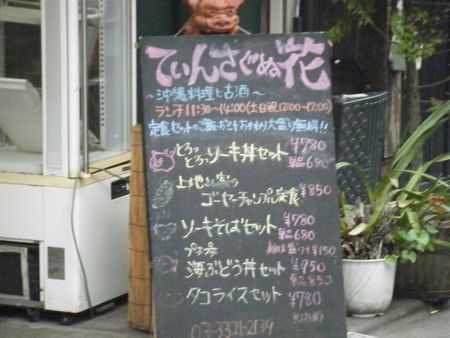 てぃんさぐぬ花
～沖縄料理と古酒～
ランチ11:30～14:00(土日祝12:00～17:00)
定食セットのご飯おかわり大盛り無料!!
とろっ
とろっソーキ丼セット ¥780
単品680
ゴーヤーチャンプル定食 ¥850
ソーキそばセット ¥780
単品680
プチプチ
麺大盛り¥150
海ぶどう丼セット ¥950
単品850
タコライスセット ¥780
03-3321-2139